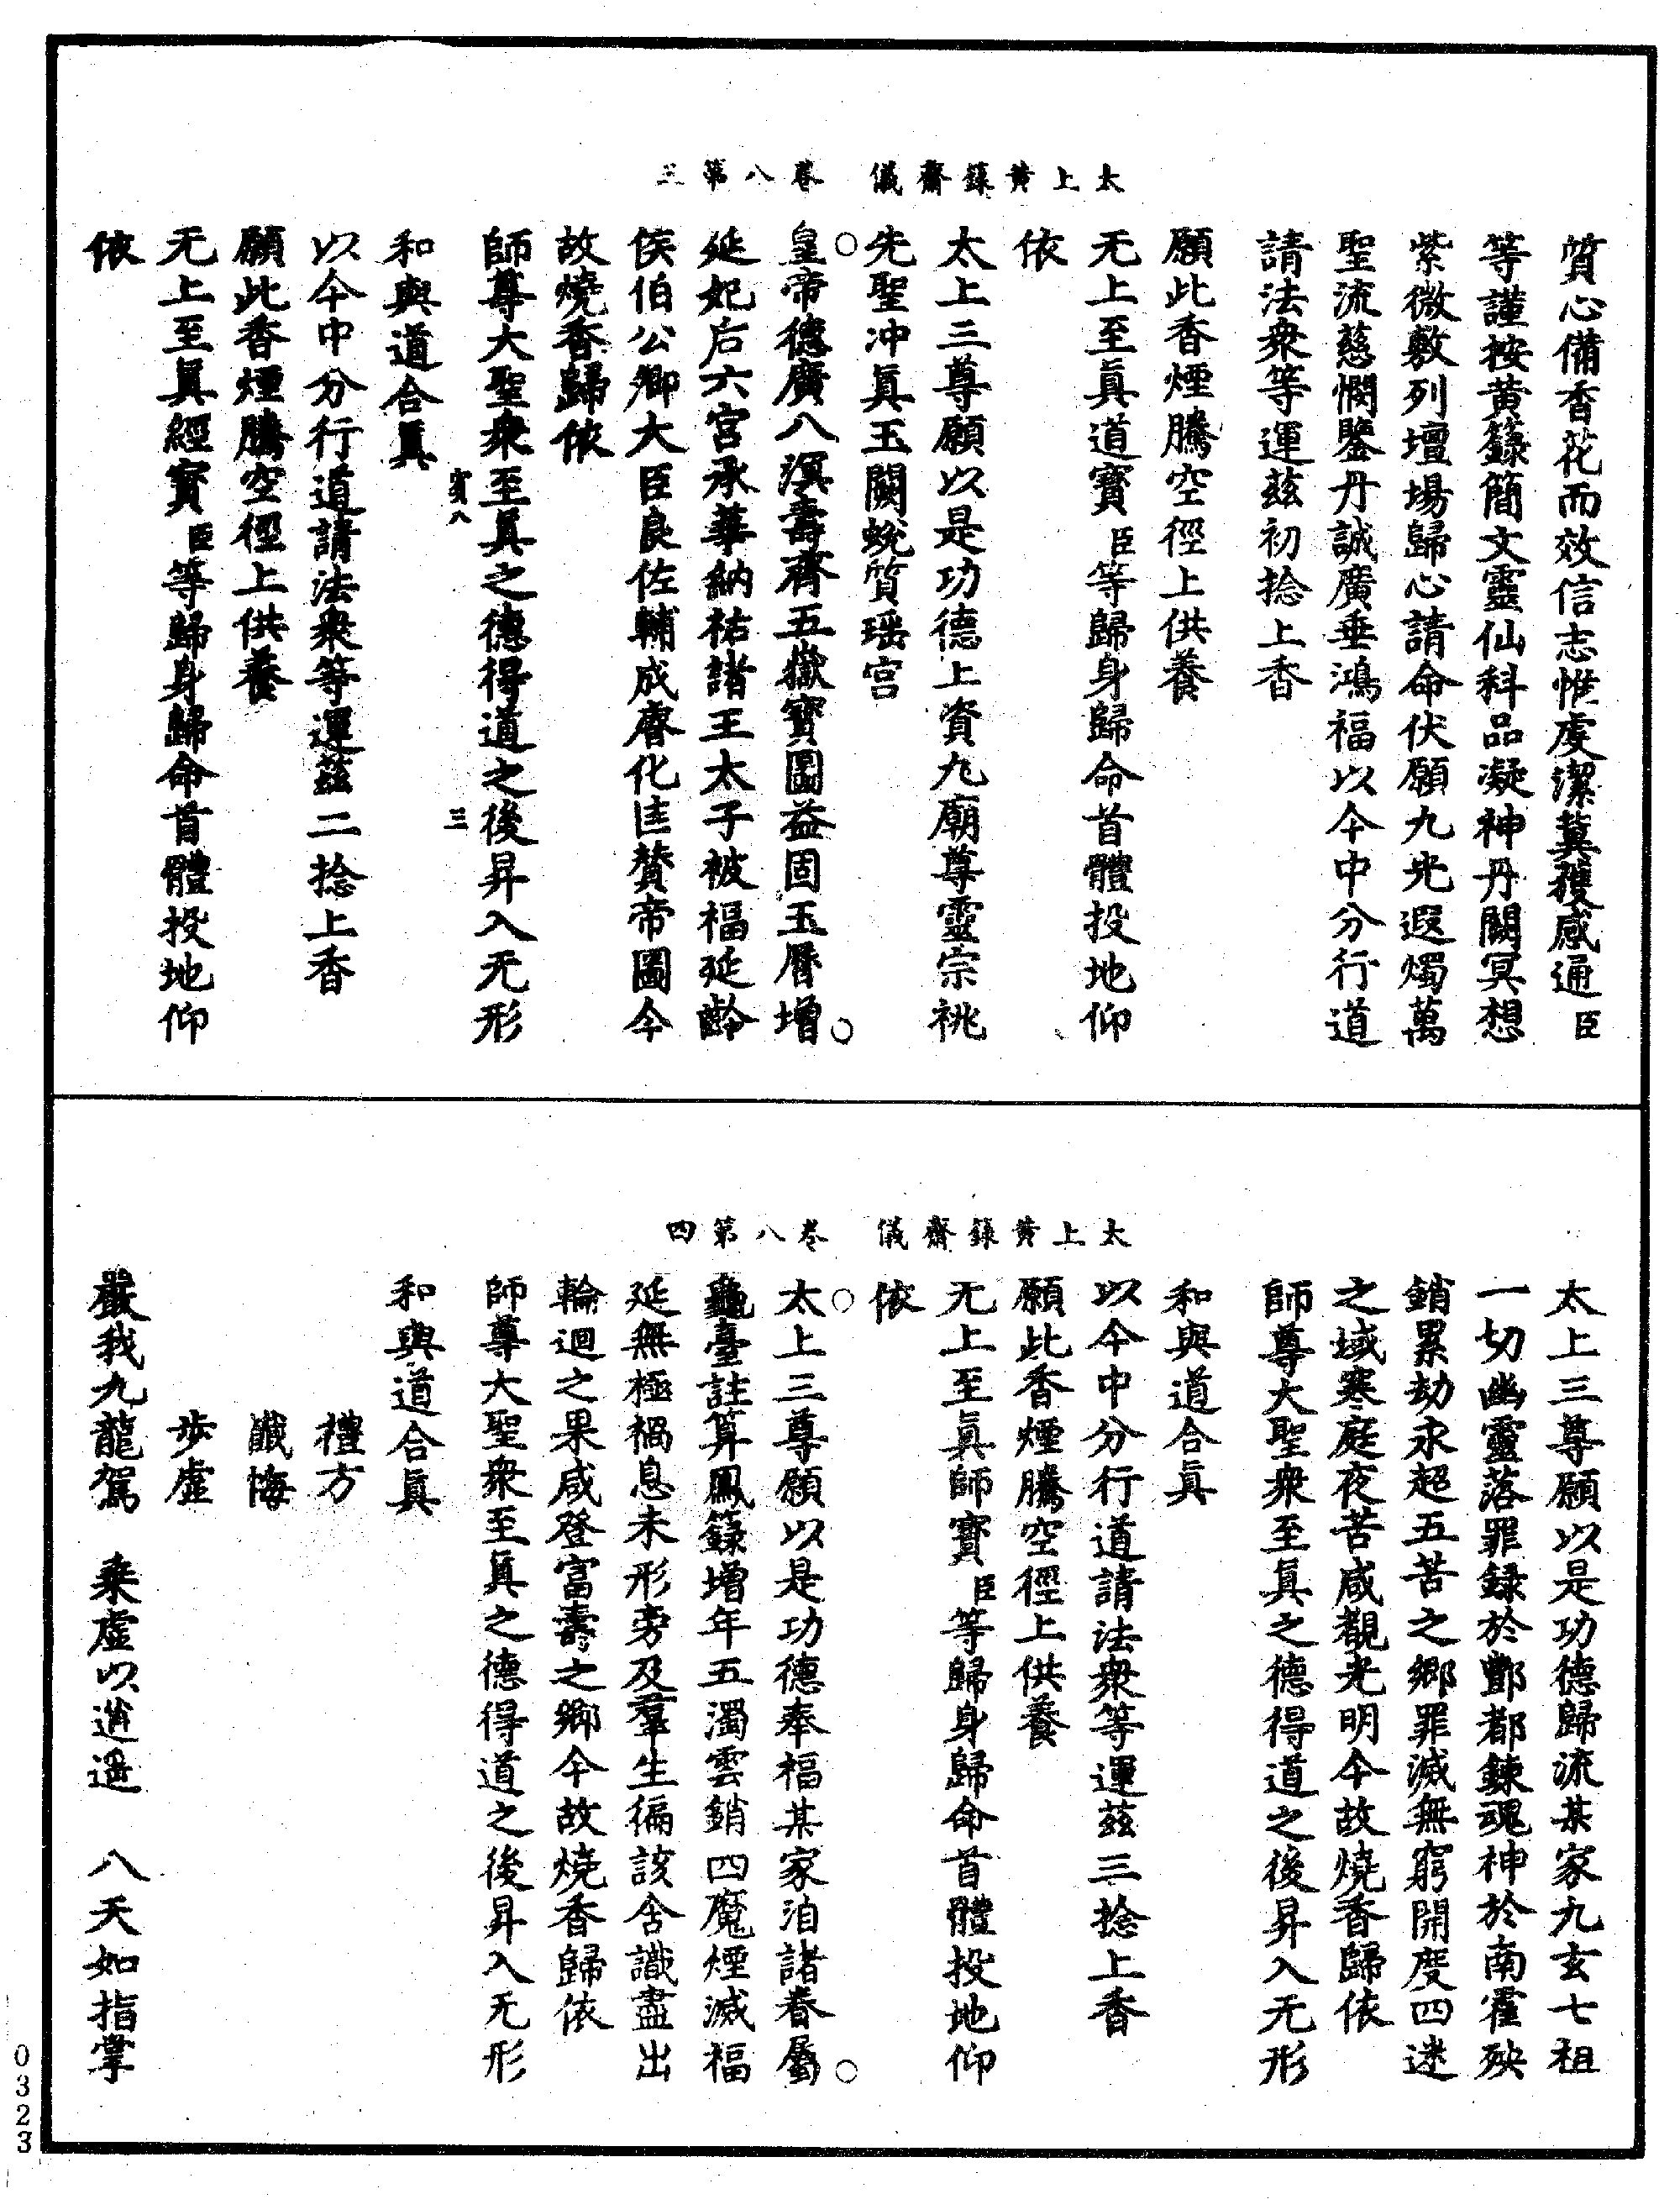 太上黄籙齋儀　卷八第三
質心備香花而效信志惟虔潔冀獲感通臣
等謹按黄籙簡文靈仙科品凝神丹闕冥想
紫微敷列壇場歸心請命伏願九光遐燭萬
聖流慈憫鑒丹誠廣垂鴻福以今中分行道
請法衆等運兹初捻上香
願此香煙騰空徑上供養
无上至眞道寳臣等歸身歸命首體投地仰
依
太上三尊願以是功德上資九廟尊靈宗祧
先聖冲眞玉闕蛻質瑶宫
皇帝德廣八溟壽齊五嶽寳圖益固玉曆增
延妃后六宫承華納祐諸王太子被福延齡
侯伯公卿大臣良佐輔成睿化匡賛帝圖今
故燒香歸依
師尊大聖衆至眞之德得道之後昇入无形
賔八　三
和與道合眞
以今中分行道請法衆等運兹二捻上香
願此香煙騰空徑上供養
无上至眞經寳臣等歸身歸命首體投地仰
依
太上黄籙齋儀　卷八第四
太上三尊願以是功德歸流某家九玄七祖
一切幽靈落罪録於酆都錬魂神於南霍殃
銷累劫永超五苦之鄉罪滅無窮開度四迷
之域寒庭夜苦咸覩光明今故燒香歸依
師尊大聖衆至眞之德得道之後昇入无形
和與道合眞
以今中分行道請法衆等運兹三捻上香
願此香煙騰空徑上供養
无上至眞師寳臣等歸身歸命首體投地仰
依
太上三尊願以是功德奉福某家洎諸眷屬
龜臺註算鳳籙增年五濁雲銷四魔煙滅福
延無極禍息未形旁及羣生徧該含識盡出
輪迴之果咸登富壽之鄉今故燒香歸依
師尊大聖衆至眞之德得道之後昇入无形
和與道合眞
禮方
懺悔
步虛
嚴我九龍駕　乗虛以逍遥　八天如指掌
0323